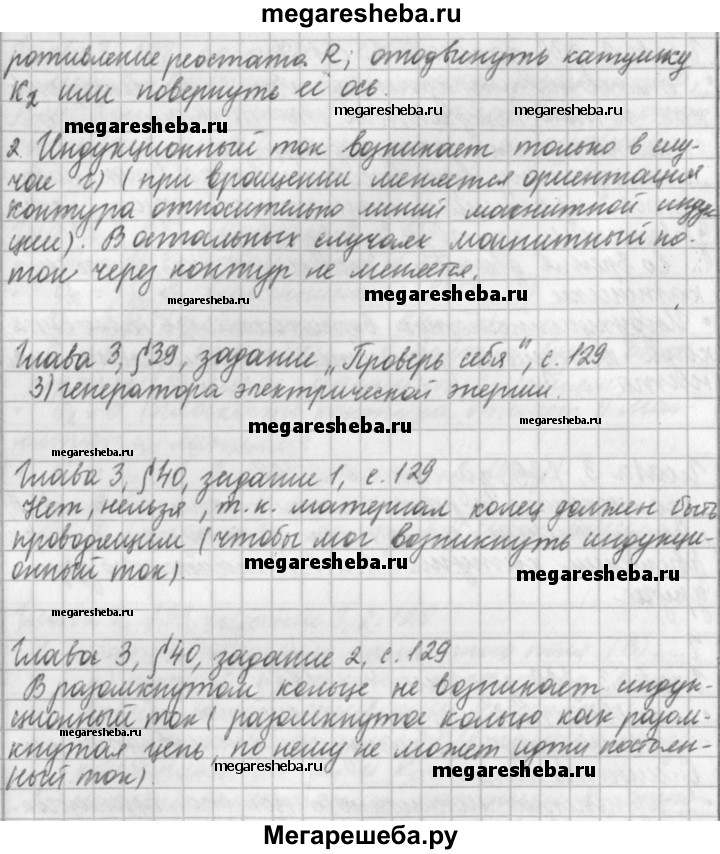 megaresheba.ru
ротивление реостата R; отодвинуть катушку
К2 или повернуть её ось.
megaresheba.ru megaresheba.ru
megaresheba.ru
2. Индукционный ток возникает только в слу-
чае г) (при вращении меняется ориентация
контура относительно линий магнитной индук
ции). В остальных случаях магнитный по-
ток через контур не меняется.
megaresheba.ru megaresheba.ru
Глава 3, §39, задание „Проверь себя", с. 129
3) генератора электрической энергии.
megaresheba.ru
megaresheba.ru
Глава 3, §40, задание 1, с. 129
Нет, нельзя, т.к. материал колец должен быть
проводящим (чтобы мог возникнуть индукци-
онный ток)
megaresheba.ru
megaresheba.ru
Глава 3, §40, задание 2, с. 129
В разомкнутом кольце не возникает индук-
ционный ток (разомкнутое кольцо как разом-
кнутая цепь, по нему не может идти постоян-
ный ток).
megaresheba.ru
megaresheba.ru megaresheba.ru
Мегарешеба.ру